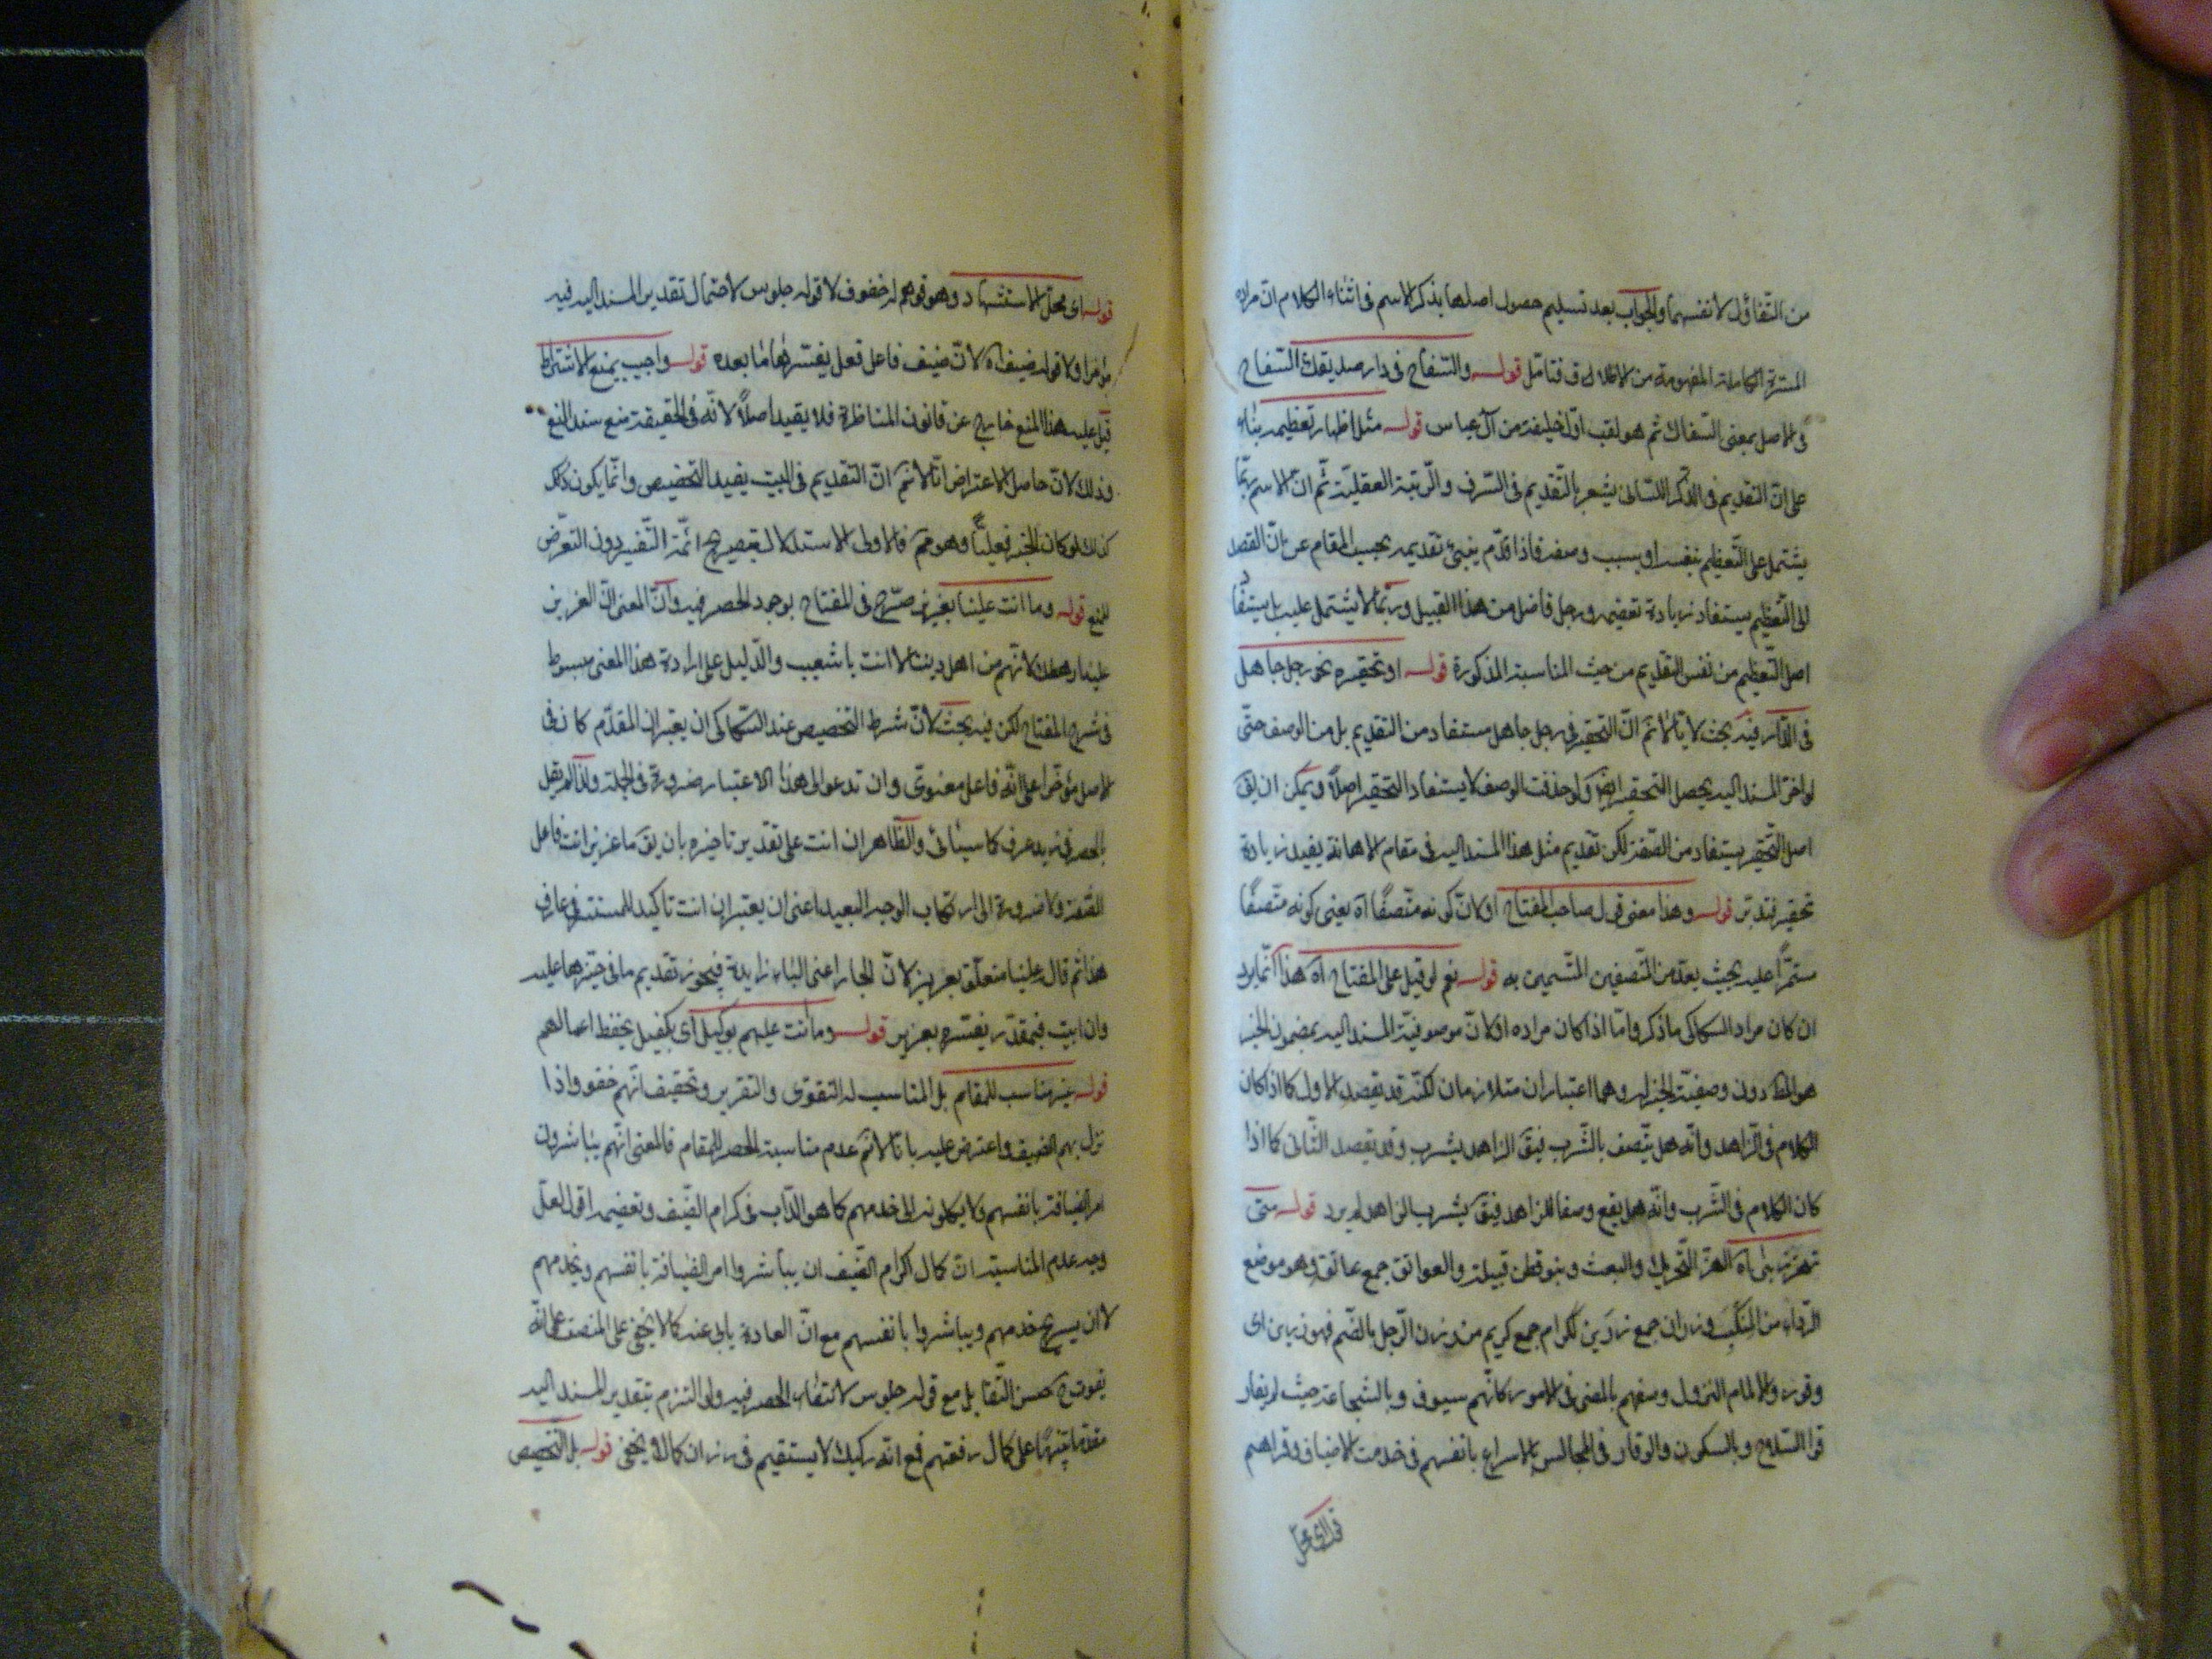 من التفاؤل لا نفسهما والجواب بعد تسليم حصول اصلها بذكر الاسم فى اثناء الكلام ان مراده
المسرة الكاملة المفهومة من الاطلاق فتأمل قوله والسفاح فى دار صديقك السفاح
فى الاصل بمعنى السفاك ثم هو لقب اول خليفة من آل عباس قوله مثل اظهار تعظيمه بناء
على ان التقديم فى الذكر اللسانى يشعر بالتقديم فى الشرف والرتبة العقلية ثم ان الاسم ربما
يشتمل على التعظيم بنفسه او بسبب وصفه فاذا قدم ينبئ تقديمه بحسب المقام عن ان القصد
الى التعظيم يستفاد زيادة تعظيمه ورجل فاضل من هذا القبيل وربما لا يشتمل عليه بل يستفاد
اصل التعظيم من نفس التقديم من حيث المناسبة المذكورة قوله او تحقيره نحو رجل جاهل
فى الدار فيه بحث لانا لانم ان التحقير فى رجل جاهل مستفاد من التقديم بل من الوصف حتى
لو اخر المسند اليه يحصل التحقير ايضا ولو حذفت الوصف لا يستفاد التحقير اصلا ويمكن ان يق
اصل التحقير يستفاد من الصفة لكن تقديم مثل هذا المسند اليه فى مقام الاهانة يفيد زيادة
تحقير فتدبر قوله وهذا معنى قول صاحب المفتاح او لان كونه متصفا اه يعنى كونه متصفا
مستمرا عليه بحيث يعد من المتصفين المتسمين به قوله نعم لو قيل على المفتاح اه هذا انما يرد
ان كان مراد السكاكى ما ذكر واما اذا كان مراده او لان موصوفية المسند اليه بمضمون الخبر
هو المط دون وصفية الخبر له وهما اعتباران متلازمان لكنه قد يقصد الاول كما اذا كان
الكلام فى الزاهد وانه هل يتصف بالشرب فيق الزاهد يشرب وقد يقصد الثانى كما اذا
كان الكلام فى الشرب وانه هل يقع وصفا للزاهد فيق يشرب الزاهد لم يرد قوله متى
تهزز بنى اه الهز التحريك والبعث وبنو قطن قبيلة والعواتق جمع عاتق وهو موضع
الرداء من المنكب وزران جمع زرين ككرام جمع كريم من زرن الرجل بالضم فهو زرين اى
وقور والالمام النزول وصفهم بالمضى فى الامور كانهم سيوف وبالشجاعة حيث لم يفار
قوا السلاح وبالسكون والوقار فى المجالس بالاسراع بانفسهم فى خدمة الاضياف وقراهم
قوله اى محل
قوله اى محل الاستشهاد وهو قوهم له خفوف لا قوله جلوس لاحتمال تقدير المسند اليه فيه
مؤخرا ولا قوله ضيف اه لان ضيف فاعل فعل يفسرها ما بعده قوله واجيب بمنع الاشتراط
قيل عليه هذا المنع خارج عن قانون المناظرة فلا يفيد اصلا لانه فى الحقيقة منع سند المنع
وذلك لان حاصل الاعتراض انا لانم ان التقديم فى البيت يفيد التخصيص وانما يكون ذلك
كذلك لو كان الخبر فعليا وهو مم فالاولى الاستدلال بتصريح ائمة التفسير دون التعرض
للمنع قوله وما انت علينا بعزيز صرح فى المفتاح بوجود الحصر فيه وان المعنى ان العزيز
علينا رهطك لانهم من اهل ديننا لا انت يا شعيب والدليل على ارادة هذا المعنى مبسوط
فى شرح المفتاح لكن فيه بحث لان شرط التخصيص عند السكاكى ان يعتبر ان المقدم كان فى
الاصل مؤخرا على انه فاعل معنوى وان تدعو الى هذا الاعتبار ضرورة فى الجملة ولذا لم يقل
بالحصر فى زيد عرف كما سيأتى والظاهر ان انت على تقدير تاخيره بان يق ما عزيز انت فاعل
الصفة ولا ضرورة الى ارتكاب الوجه البعيد اعنى ان يعتبر ان انت تاكيد للمستتر فى عارف
هذا ثم قال وعلينا متعلق بعزيز لان الجار اعنى الباء زايدة فيجوز تقديم ما فى حيزها عليه
وان ابيت فبمقدر يفسره بعزيز قوله وما انت عليهم بوكيل اى بكفيل يحفظ اعمالهم
قوله غير مناسب للمقام بل المناسب له التقوى والتقرير وتحقيف انهم خفوف اذا
نزل بهم الضيف واعترض عليه بانا لانم عدم مناسبة الحصر للمقام فالمعنى انهم يباشرون
امر الضيافة بانفسهم ولا يكلونه الى خدمهم كما هو الدآب فى كرام الضيف وتعضيمه اقول لعل
وجه عدم المناسبة ان كمال اكرام الضيف ان يباشروا امر الضيافة بانفسهم وبخدمهم
لا ان يسرع خدمهم ويباشروا بانفسهم مع ان العادة يابى عنه كما لا يخفى على المنصف على انه
يفوت ح حسن التقابل مع قوله جلوس لانتفاء الحصر فيه ولو التزم بتقدير المسند اليه
مقدما تنبيها على كمال رفعتهم فمع انه ركيك لا يستقيم فى رزان كما لا يخفى قوله بل التخصيص